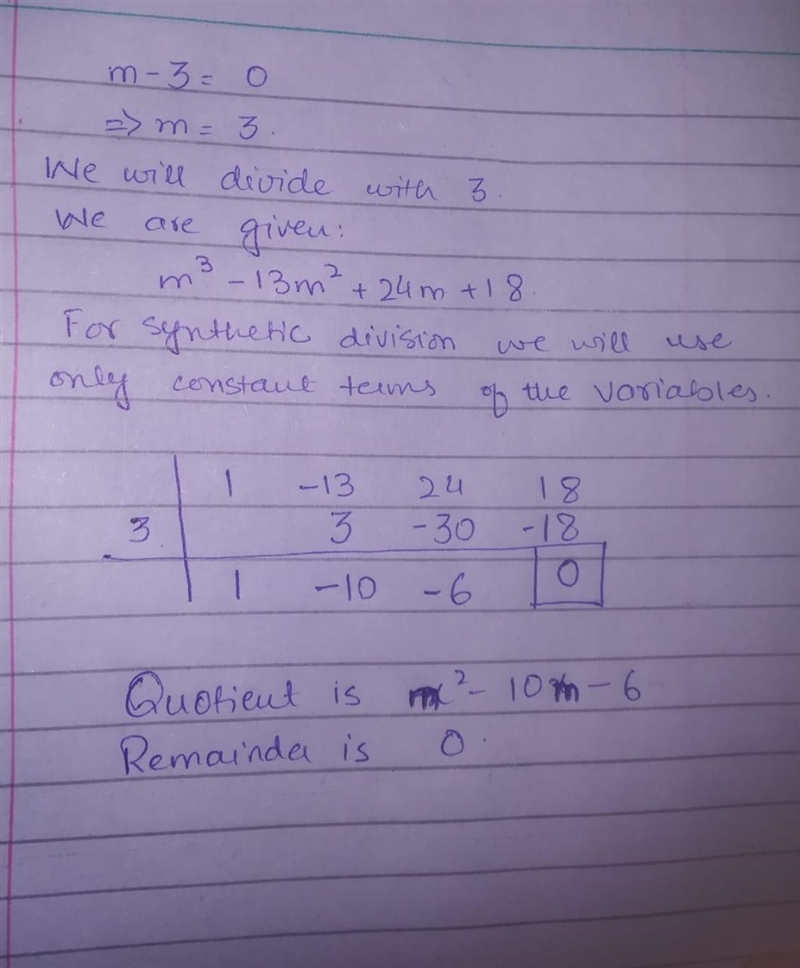 m - 3 = 0
=> m = 3.
We will divide with 3.
We are given:
m³ - 13m² + 24m + 18.
For synthetic division we will use
only constant terms of the variables.
1 -13 24 18
3 3 -30 -18
1 -10 -6 0
Quotient is m² - 10m - 6
Remainder is 0.